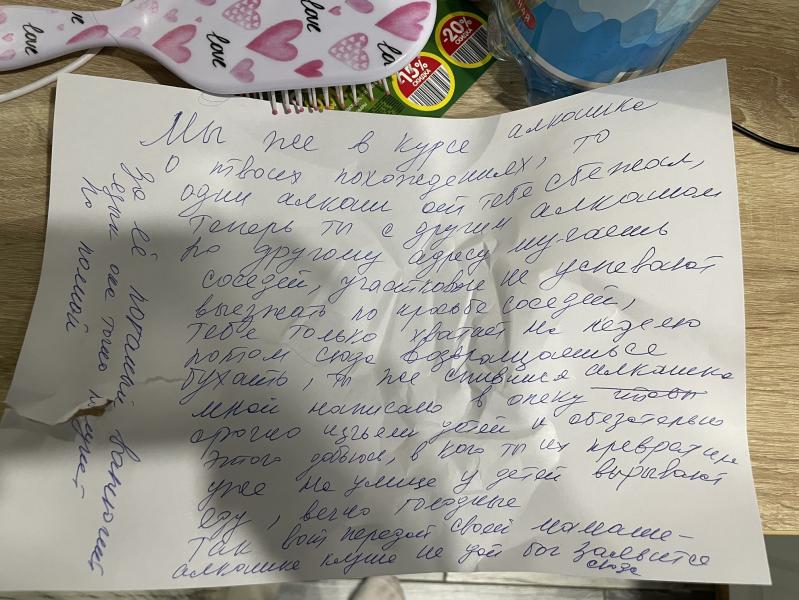 love
love
love
love
-15%
СКИДКА
-20%
СКИДКА
Мы же в курсе алкашка
о твоих похождениях, то
один алкаш от тебе сбежал,
теперь ты с другим алкашом
по другому адресу мучаешь
соседей, участковые не успевают
выезжать по просьбе соседей,
тебе только хватает на неделю
потом сюда возвращаешься
бухать, ты же спившися алкашка
мной написано в опеку
срочно изъяли детей и обезательно
этого добьюсь, в кого ты их превратила
уже на улице у детей вырывают
еду, вечно голодные
Так вот передай своей мамаше-
алкашке клуше не дай бог заявится
сюда
За её поганый вонючий
язык она точно получит
По полной